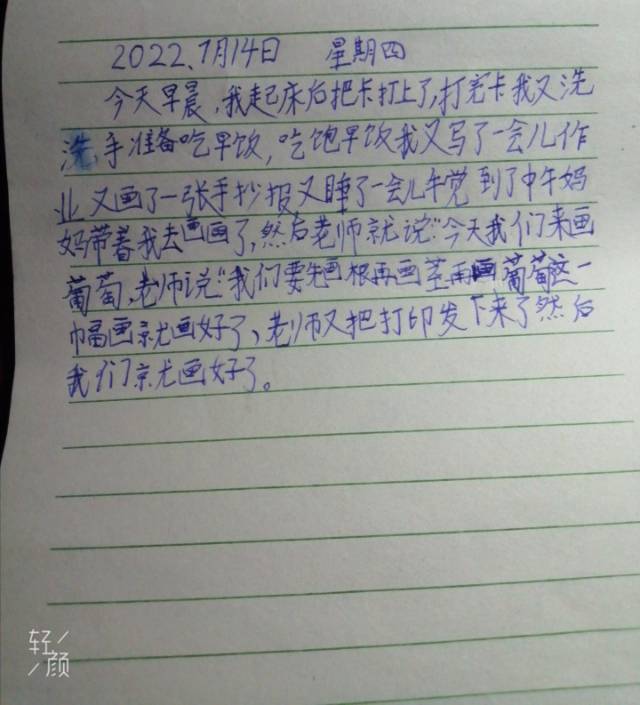 2022.7月14日 星期四
今天早晨,我起床后把卡打上了,打完卡我又洗
洗手准备吃早饮,吃饱早饮我又写了一会儿作
业又画了一张手抄报又睡了一会儿午觉到了中午妈
妈带着我去画画了,然后老师就说:“今天我们来画
葡萄,老师说“我们要先画根再画茎再画葡萄这一
幅画就画好了、老师又把打印发下来了然后
我们就画好了。
轻
颜